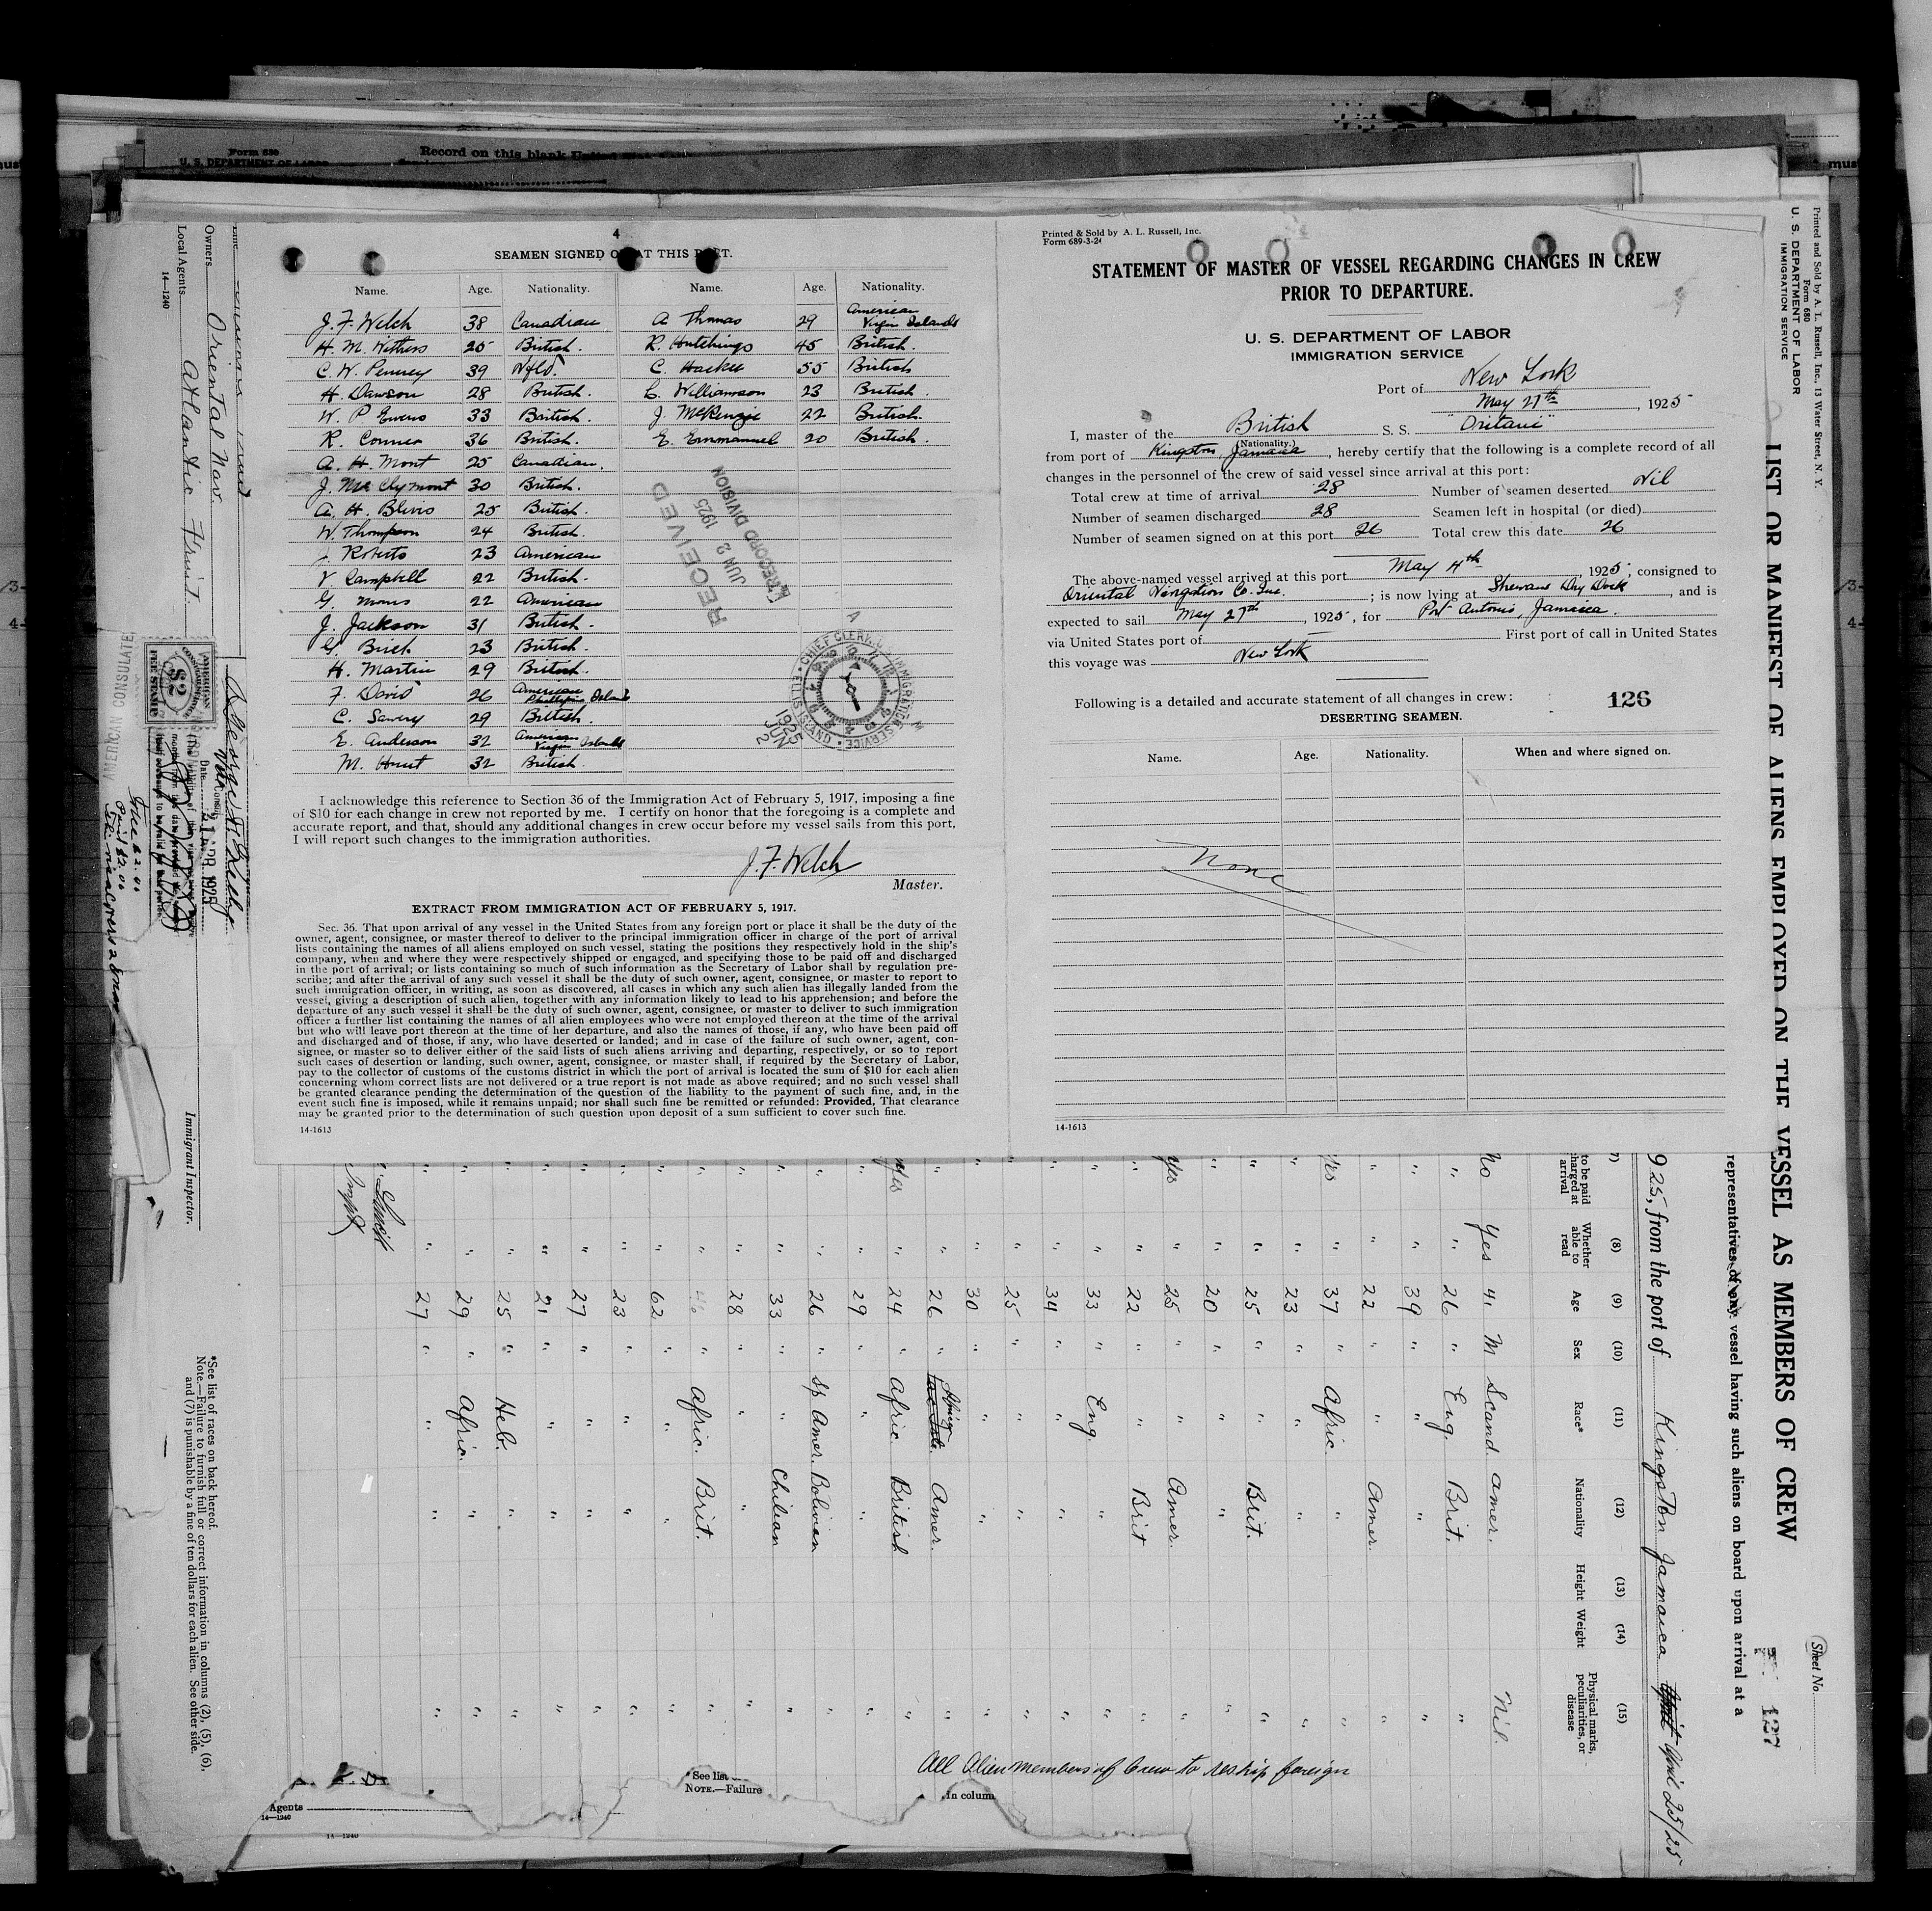 Form 680
U. S. DEPARTMENT OF LABOR
Record on this blank United
4
SEAMEN SIGNED ON AT THIS PORT.
Name. Age. Nationality. Name. Age. Nationality.
J. F. Welch 38 Canadian A Thomas 29 American Virgin Islands
H. M. Withers 25 British. R. Hutchings 45 British.
C. W. Penney 39 Nfld. C. Hackee 55 British
H. Dawson 28 British. C. Williamson 23 British.
W. P. Ewens 33 British. J. McKenzie 22 British.
R. Conner 36 British. E. Emmanuel 20 British.
A. H. Mont 25 Canadian.
J. McClymont 30 British.
A. H. Blivis 25 British.
W. Thompson 24 British.
J. Roberts 23 American
V. Campbell 22 British.
G. Morris 22 American
J. Jackson 31 British.
G. Brick 23 British.
H. Martin 29 British.
F. David 26 American Phillipine Islands
C. Sawery 29 British.
E. Anderson 32 American Virgin Islands
M. Hunt 32 British.
RECEIVED
JUN 2 1925
RECORD DIVISION
CHIEF CLERK, U. S. IMMIGRATION SERVICE
ELLIS ISLAND
1925 JUN 2
I acknowledge this reference to Section 36 of the Immigration Act of February 5, 1917, imposing a fine
of $10 for each change in crew not reported by me. I certify on honor that the foregoing is a complete and
accurate report, and that, should any additional changes in crew occur before my vessel sails from this port,
I will report such changes to the immigration authorities.
J. F. Welch
Master.
EXTRACT FROM IMMIGRATION ACT OF FEBRUARY 5, 1917.
Sec. 36. That upon arrival of any vessel in the United States from any foreign port or place it shall be the duty of the
owner, agent, consignee, or master thereof to deliver to the principal immigration officer in charge of the port of arrival
lists containing the names of all aliens employed on such vessel, stating the positions they respectively hold in the ship's
company, when and where they were respectively shipped or engaged, and specifying those to be paid off and discharged
in the port of arrival; or lists containing so much of such information as the Secretary of Labor shall by regulation pre-
scribe; and after the arrival of any such vessel it shall be the duty of such owner, agent, consignee, or master to report to
such immigration officer, in writing, as soon as discovered, all cases in which any such alien has illegally landed from the
vessel, giving a description of such alien, together with any information likely to lead to his apprehension; and before the
departure of any such vessel it shall be the duty of such owner, agent, consignee, or master to deliver to such immigration
officer a further list containing the names of all alien employees who were not employed thereon at the time of the arrival
but who will leave port thereon at the time of her departure, and also the names of those, if any, who have been paid off
and discharged and of those, if any, who have deserted or landed; and in case of the failure of such owner, agent, con-
signee, or master so to deliver either of the said lists of such aliens arriving and departing, respectively, or so to report
such cases of desertion or landing, such owner, agent, consignee, or master shall, if required by the Secretary of Labor,
pay to the collector of customs of the customs district in which the port of arrival is located the sum of $10 for each alien
concerning whom correct lists are not delivered or a true report is not made as above required; and no such vessel shall
be granted clearance pending the determination of the question of the liability to the payment of such fine, and, in the
event such fine is imposed, while it remains unpaid; nor shall such fine be remitted or refunded: Provided, That clearance
may be granted prior to the determination of such question upon deposit of a sum sufficient to cover such fine.
14-1613
Printed & Sold by A. L. Russell, Inc.
Form 689-3-24
STATEMENT OF MASTER OF VESSEL REGARDING CHANGES IN CREW
PRIOR TO DEPARTURE.
U. S. DEPARTMENT OF LABOR
IMMIGRATION SERVICE
Port of New York
May 27th, 1925
I, master of the British S. S. "Oritani"
(Nationality.)
from port of Kingston, Jamaica, hereby certify that the following is a complete record of all
changes in the personnel of the crew of said vessel since arrival at this port:
Total crew at time of arrival 28 Number of seamen deserted Nil
Number of seamen discharged 28 Seamen left in hospital (or died)
Number of seamen signed on at this port 26 Total crew this date 26
The above-named vessel arrived at this port May 4th 1925, consigned to
Oriental Navgation Co. Inc.; is now lying at Shewans Dry Dock, and is
expected to sail May 27th, 1925, for Port Antonio, Jamaica.
via United States port of First port of call in United States
this voyage was New York
Following is a detailed and accurate statement of all changes in crew: 126
DESERTING SEAMEN.
Name. Age. Nationality. When and where signed on.
None
14-1613
Printed and Sold by A. L. Russell, Inc., 13 Water Street, N. Y.
Form 680
U. S. DEPARTMENT OF LABOR
IMMIGRATION SERVICE
Sheet No.
127
LIST OR MANIFEST OF ALIENS EMPLOYED ON THE VESSEL AS MEMBERS OF CREW
representatives of any vessel having such aliens on board upon arrival at a
925, from the port of Kingston Jamaica April 25/25
(7) (8) (9) (10) (11) (12) (13) (14) (15)
to be paid charged at arrival Whether able to read Age Sex Race* Nationality Height Weight Physical marks, peculiarities, or disease
no Yes 41 M Scand Amer. Nil.
" " 26 " Eng. Brit. "
" " 39 " " " "
" " 22 " " Amer. "
yes " 37 " Afric. " "
" " 23 " " " "
" " 25 " " Brit. "
" " 20 " " " "
yes " 25 " " Amer. "
" " 22 " " Brit "
" " 33 " Eng. " "
" " 34 " " " "
" " 25 " " " "
" " 30 " " " "
" " 26 " Amer. "
yes " 24 " Afric British "
" " 29 " " " "
" " 26 " Sp Amer Bolivian "
" " 33 " " Chilian "
" " 28 " " " "
" " 46 " Afric. Brit. "
" " 62 " " " "
" " 23 " " " "
" " 27 " " " "
" " 21 " " " "
" " 25 " Heb. " "
" " 29 " Afric. " "
" " 27 " " " "
All Alien members of Crew to reship foreign
Owners Oriental Nav.
Local Agents Atlantic Fruit.
14-1240
Immigrant Inspector.
AMERICAN CONSULATE
AMERICAN CONSULAR SERVICE
$2
FEE STAMP
Date 21 APR 1925
Fee $2.00
*See list of races on back hereof.
Note.—Failure to furnish full or correct information in columns (2), (5), (6),
and (7) is punishable by a fine of ten dollars for each alien. See other side.
*See list
NOTE.—Failure
in column
Agents
14-1240
14-1240